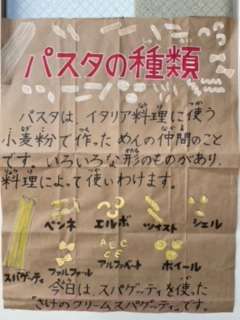 パスタの種類
パスタは、イタリア料理に使う
小麦粉で作っためんの仲間のこと
です。いろいろな形のものがあり、
料理によって使いわけます。
ペンネ エルボ ツイスト シェル
スパゲッティ ファルファーレ アルファベート ホイール
今日は、スパゲッティを使った
"さけのクリームスパゲッティ"です。